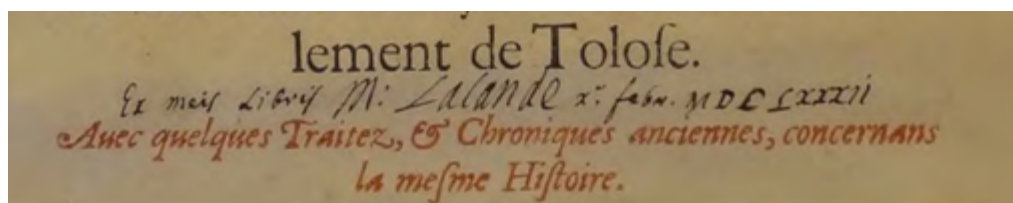 lement de Toloſe.
Ex meis Libris M: Lalande x.ͬ febr. MDCLXXXII
Auec quelques Traitez, & Chroniques anciennes, concernans
la meſme Hiſtoire.